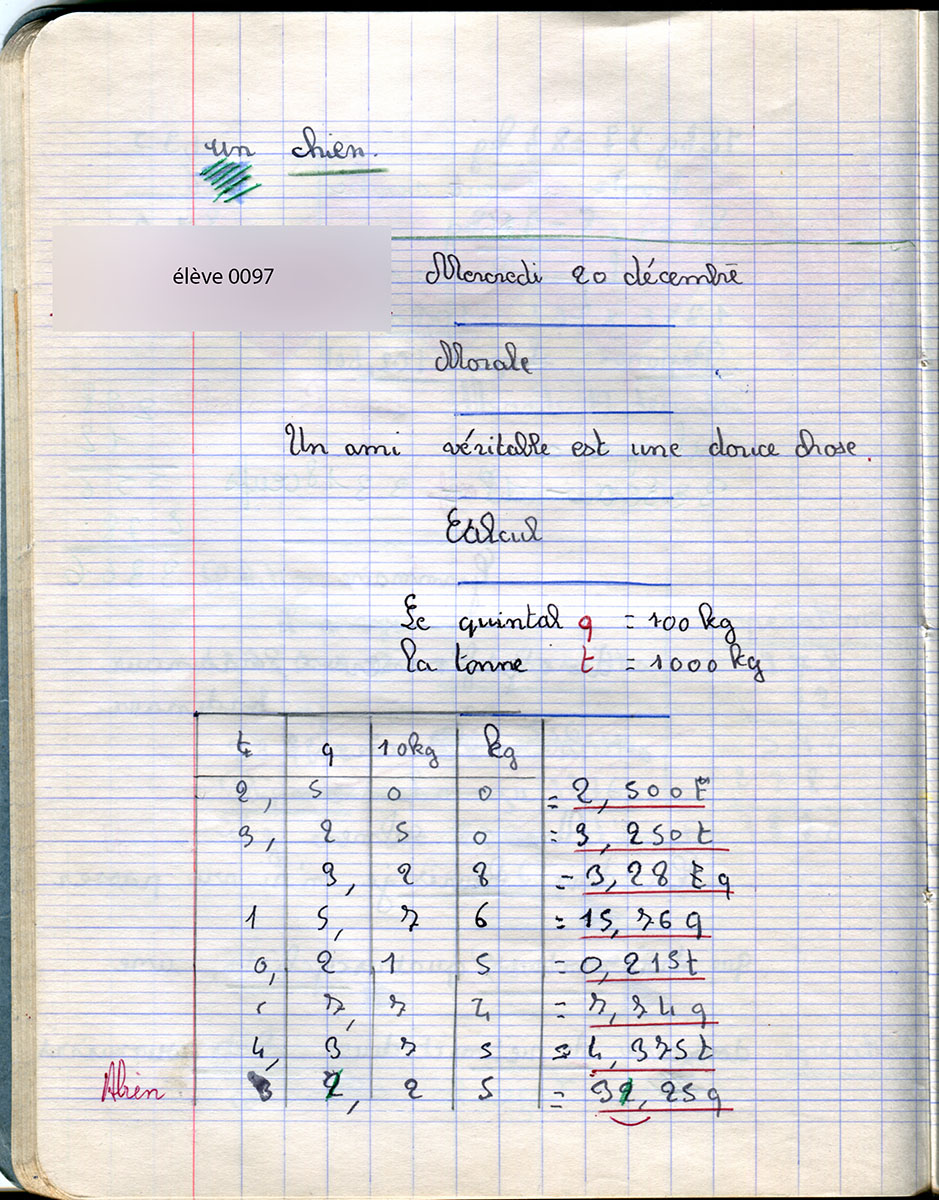 un chien.
élève 0097
Mercredi 20 décembre
Morale
Un ami véritable est une douce chose.
Calcul
Le quintal q = 100 kg
la tonne t = 1000 kg
t q 10kg kg
2, 5 0 0 = 2, 500 t
3, 2 5 0 = 3, 250 t
3, 2 8 = 3, 28 q
1 5, 7 6 = 15, 76 q
0, 2 1 5 = 0, 215t
7, 7 4 = 7, 74 q
4, 3 7 5 = 4, 375t
3 2, 2 5 = 32, 25q